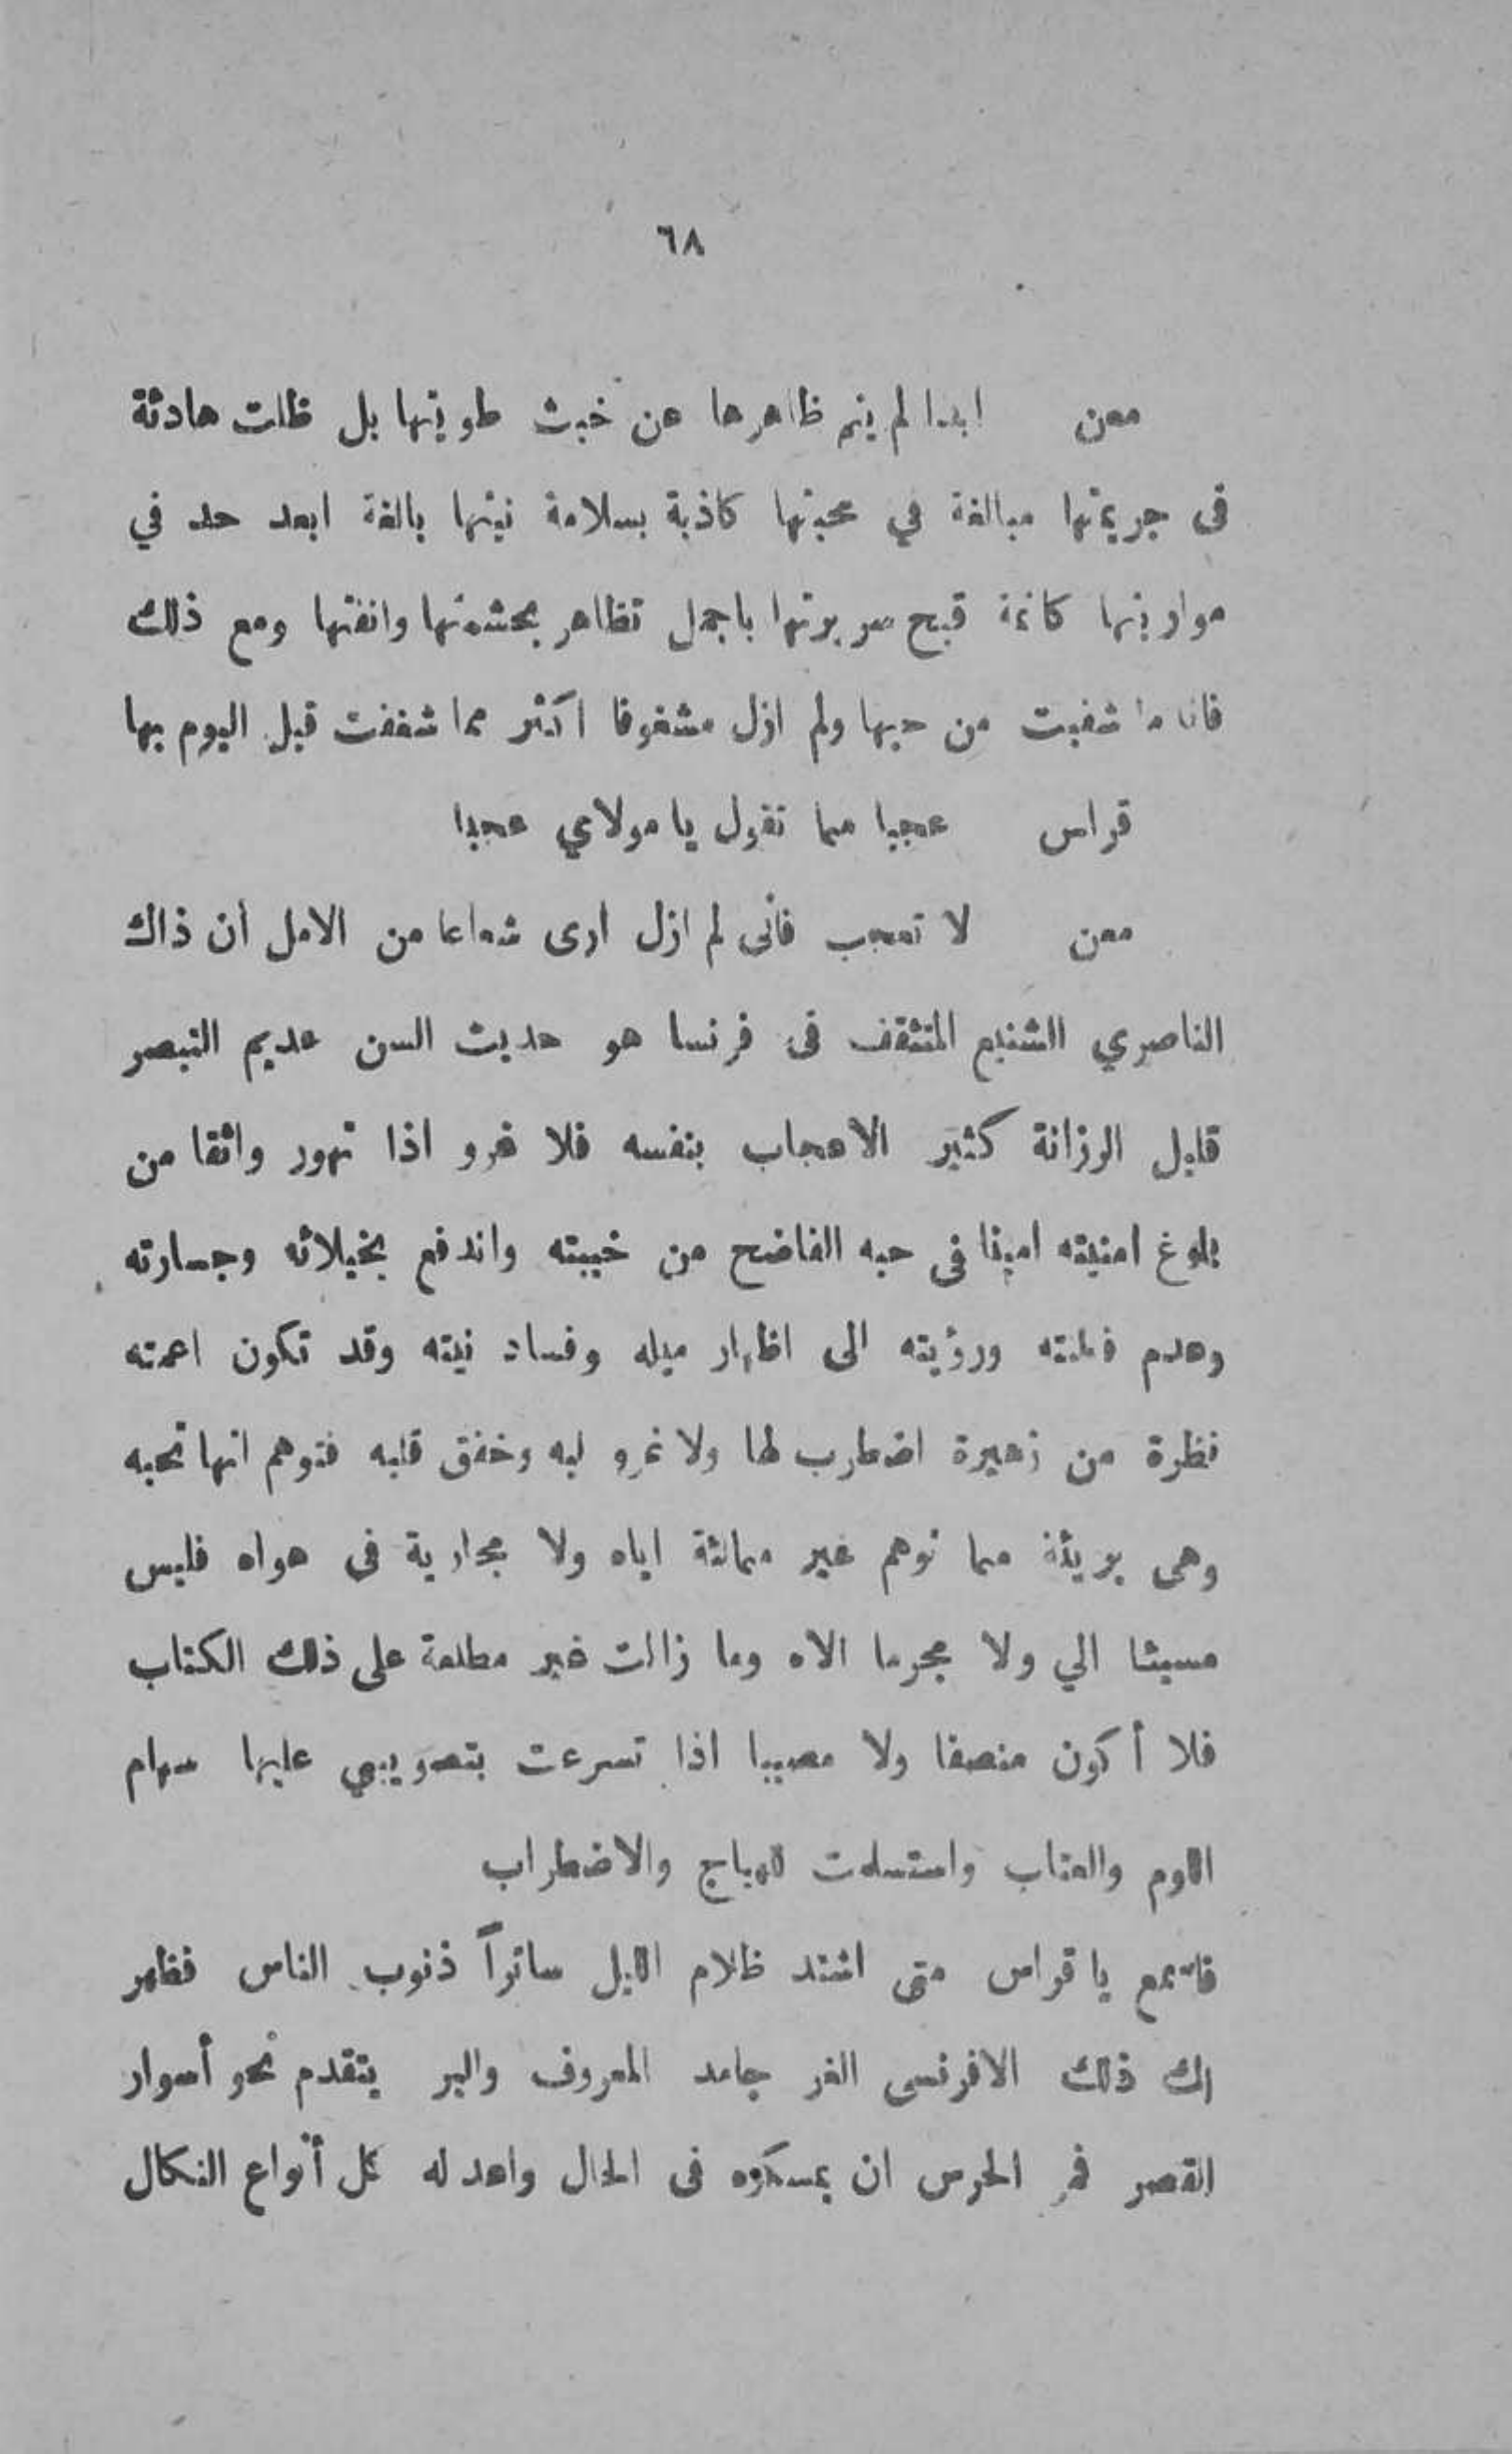 ٦٨
معن ابدا لم ينم ظاهرها عن خبث طويتها بل ظلت هادئة
فى جريمتها مبالغة في محبتها كاذبة بسلامة نيتها بالغة ابعد حد في
مواربتها كاتمة قبح سريرتها باجمل تظاهر بحشمتها وانفتها ومع ذلك
فانا ما شفيت من حبها ولم ازل مشغوفا اكثر مما شغفت قبل اليوم بها
قراس عجبا مما تقول يا مولاي عجبا
معن لا تعجب فأنى لم ازل ارى شعاعا من الامل أن ذاك
الناصري الشنيع المتثقف فى فرنسا هو حديث السن عديم التبصر
قليل الرزانة كثير الاعجاب بنفسه فلا غرو اذا تهور واثقا من
بلوغ امنيته امينا فى حبه الفاضح من خيبته واندفع بخيلائه وجسارته
وعدم فطنته ورؤيته الى اظهار ميله وفساد نيته وقد تكون اعمته
نظرة من زهيرة اضطرب لها ولا غرو لبه وخفق قلبه فتوهم انها تحبه
وهى بريئة مما توهم غير ممالئة اياه ولا مجارية فى هواه فليس
مسيئا الي ولا مجرما الاه وما زالت غير مطلعة على ذلك الكتاب
فلا أكون منصفا ولا مصيبا اذا تسرعت بتصويبي عليها سهام
اللوم والعتاب واستسلمت للهياج والاضطراب
فاسمع يا قراس متى اشتد ظلام الليل ساتراً ذنوب الناس فظهر
لك ذلك الافرنسى الغر جامد المعروف والبر يتقدم نحو أسوار
القصر فمر الحرس ان يمسكوه فى الحال واعد له كل أنواع النكال